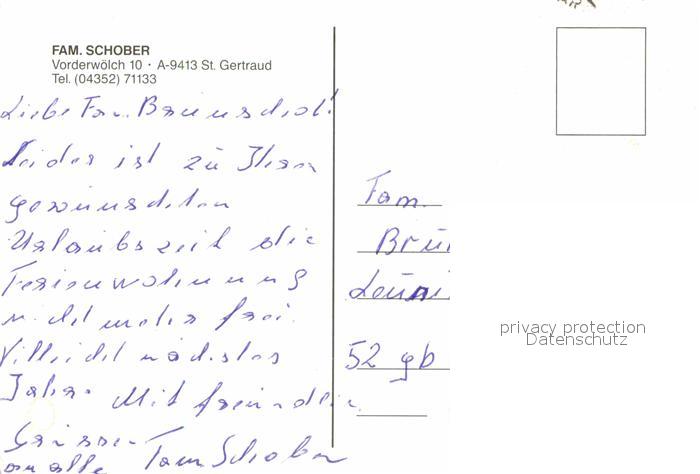 FAM. SCHOBER
Vorderwölch 10 · A-9413 St. Gertraud
Tel. (04352) 71133
Liebe Fam.
Leider ist zu Ihrer
gewünschten
Urlaubszeit die
Ferienwohnung
nicht mehr frei.
Villeicht nächstes
Jahr. Mit freundlic.
Grüssen
an alle Fam Schober
Fam.
Brü
52 gb
privacy protection
Datenschutz